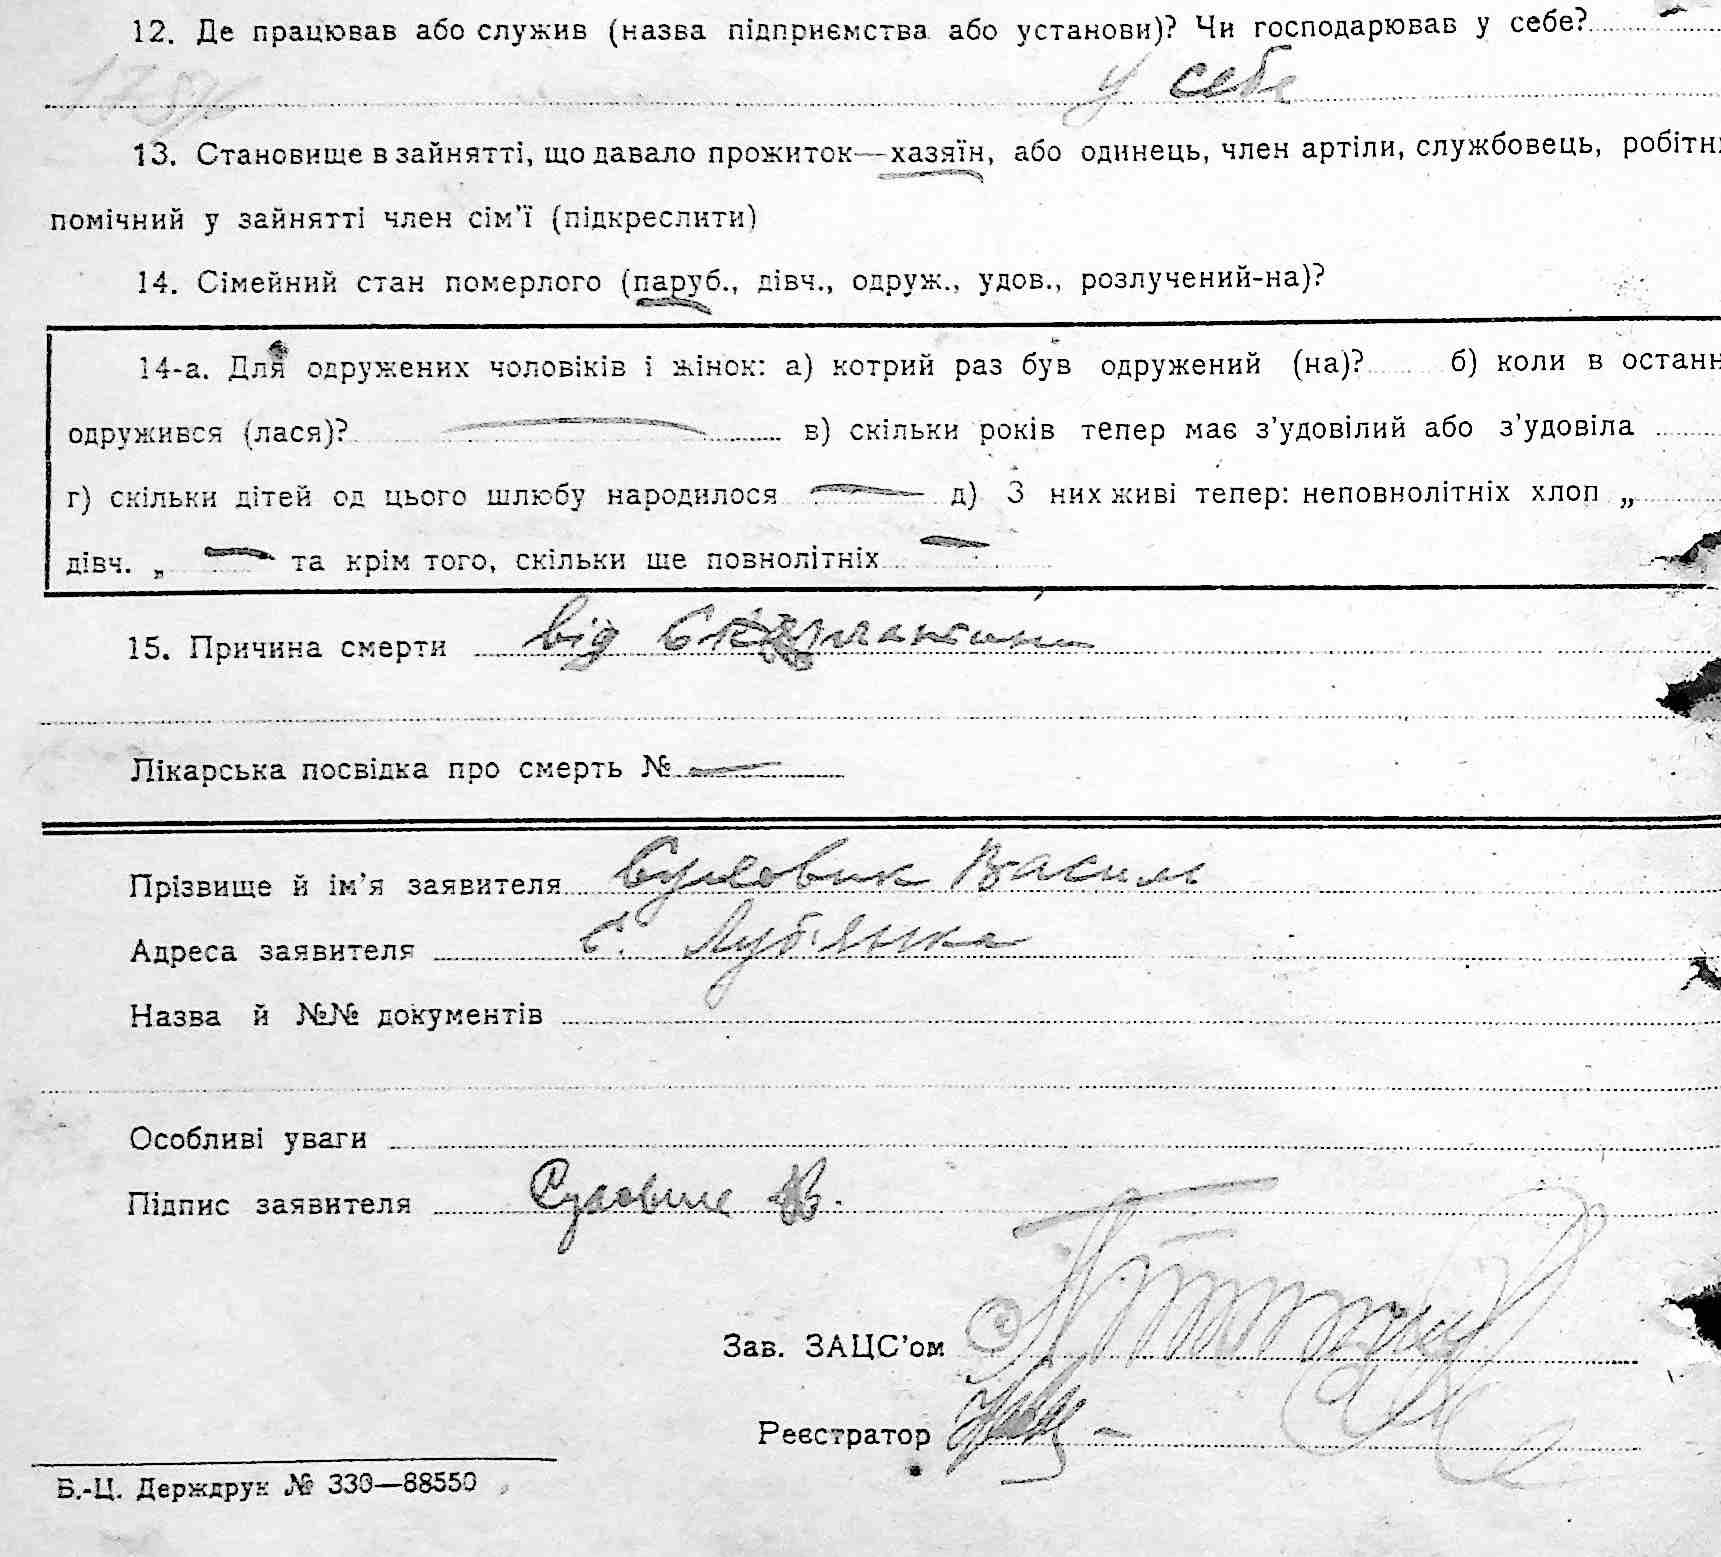 12. Де працював або служив (назва підприємства або установи)? Чи господарював у себе?
у себе
13. Становище в зайнятті, що давало прожиток—хазяїн, або одинець, член артіли, службовець, робітн
помічний у зайнятті член сім’ї (підкреслити)
14. Сімейний стан померлого (паруб., дівч., одруж., удов., розлучений-на)?
14-а. Для одружених чоловіків і жінок: а) котрий раз був одружений (на)? б) коли в останн
одружився (лася)? в) скільки років тепер має з’удовілий або з’удовіла
г) скільки дітей од цього шлюбу народилося — д) З них живі тепер: неповнолітніх хлоп „
дівч. „ — та крім того, скільки ще повнолітніх —
15. Причина смерти від
Лікарська посвідка про смерть № —
Прізвище й ім’я заявителя Суловик Василь
Адреса заявителя с. Луб'янка
Назва й №№ документів
Особливі уваги
Підпис заявителя Суловик В.
Зав. ЗАЦС’ом
Реєстратор
Б.-Ц. Держдрук № 330—88550